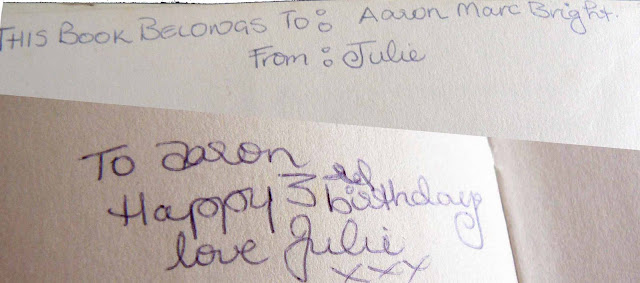 THIS BOOK BELONGS TO: Aaron Marc Bright.
From: Julie
To aaron
Happy 3rd birthday
love Julie
xxx